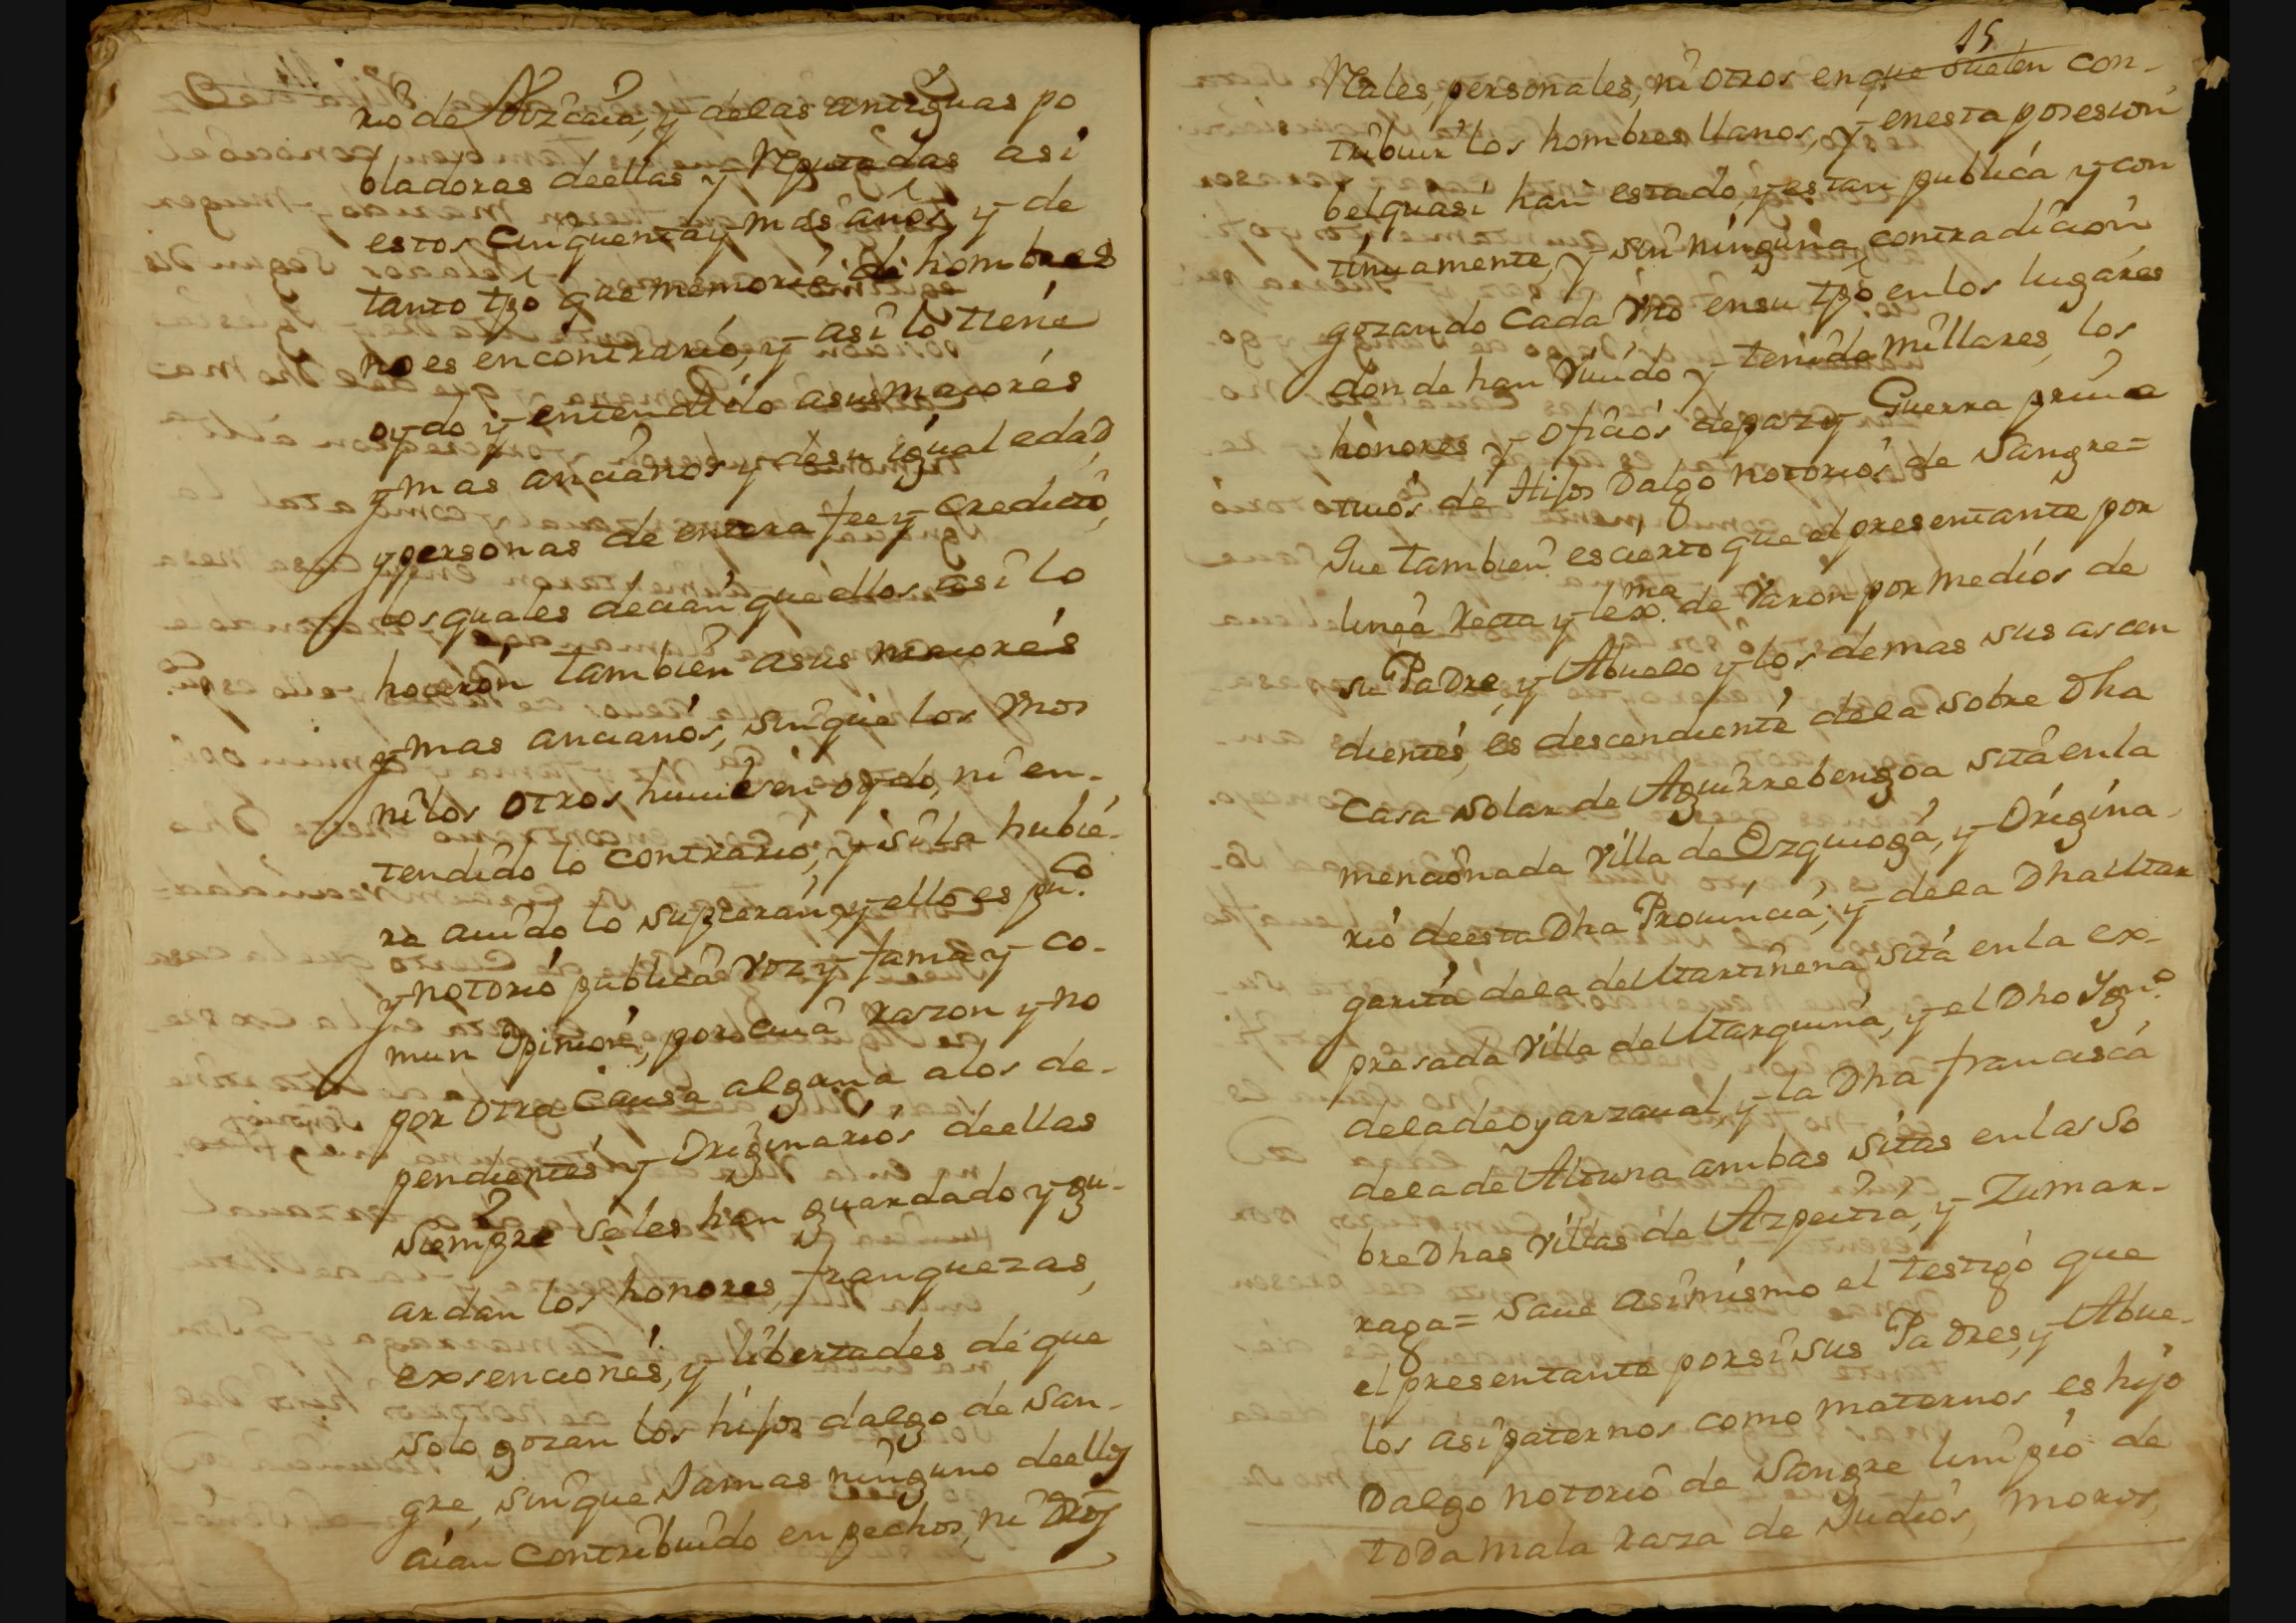 rio de Vizcaia, y delas antiguas po
bladoras deellas y Reputadas asi
estos cinquenta y mas años, y de
tanto tpô que memoria de hombres
no es encontrario, y asi lo tiene
oydo y entendido asus maiores
y mas ancianos y desu igual edad,
y personas de entera fee y credito,
los quales decian que ellos asi lo
hoieron tambien asus maiores
y mas ancianos, sinque los Vnos
ni los otros huuiesen oydo, ni en-
tendido lo contrario, y si la hubie-
ra auido lo supieran, y ello es pu.co
y notorio publica voz y fama y co-
mun opinion, por cuia razon y no
por otra causa alguna alos de-
pendientes y Originarios deellas
siempre seles han guardado y gu-
ardan los honores, franquezas,
exsenciones, y libertades de que
solo gozan los hijos dalgo de san-
gre, sinque Jamas ninguno deellos
aian contribuido en pechos, ni Dros
15
Reales, personales, ni otros enque suelen con-
tribuir los hombres llanos, y enesta posesion
belquasi han estado, y estan publica y con
tinuamente, y sin ninguna contradicion
gozando cada Vno ensu tpô enlos lugares
donde han Viuido y tenido millares, los
honores y oficios depaz y Guerra priua
tiuos de Hijos Dalgo notorios de Sangre=
Que tambien es cierto que el presentante por
linea recta y lex.ma de Varon por medios de
su Padre, y Abuelo y los demas sus ascen
dientes, es descendiente dela sobre Dha
Casa solar de Aguirrebengoa sita enla
mencionada Villa de Ezquioga, y Origina-
rio deesta Dha Prouincia, y dela Dha Mar
garita dela de Martinena sita enla ex-
presada Villa de Marquina, y el Dho Ign.o
dela de oyarzaual, y la Dha francisca
dela de Altuna ambas sitas enlas so
bre Dhas Villas de Azpeitia, y Zumar-
raga= Saue asimismo el testigo que
el presentante porsi sus Padres, y Abue-
los asi paternos como maternos es hijo
Dalgo notorio de Sangre limpio de
toda mala raza de Judios, moros,